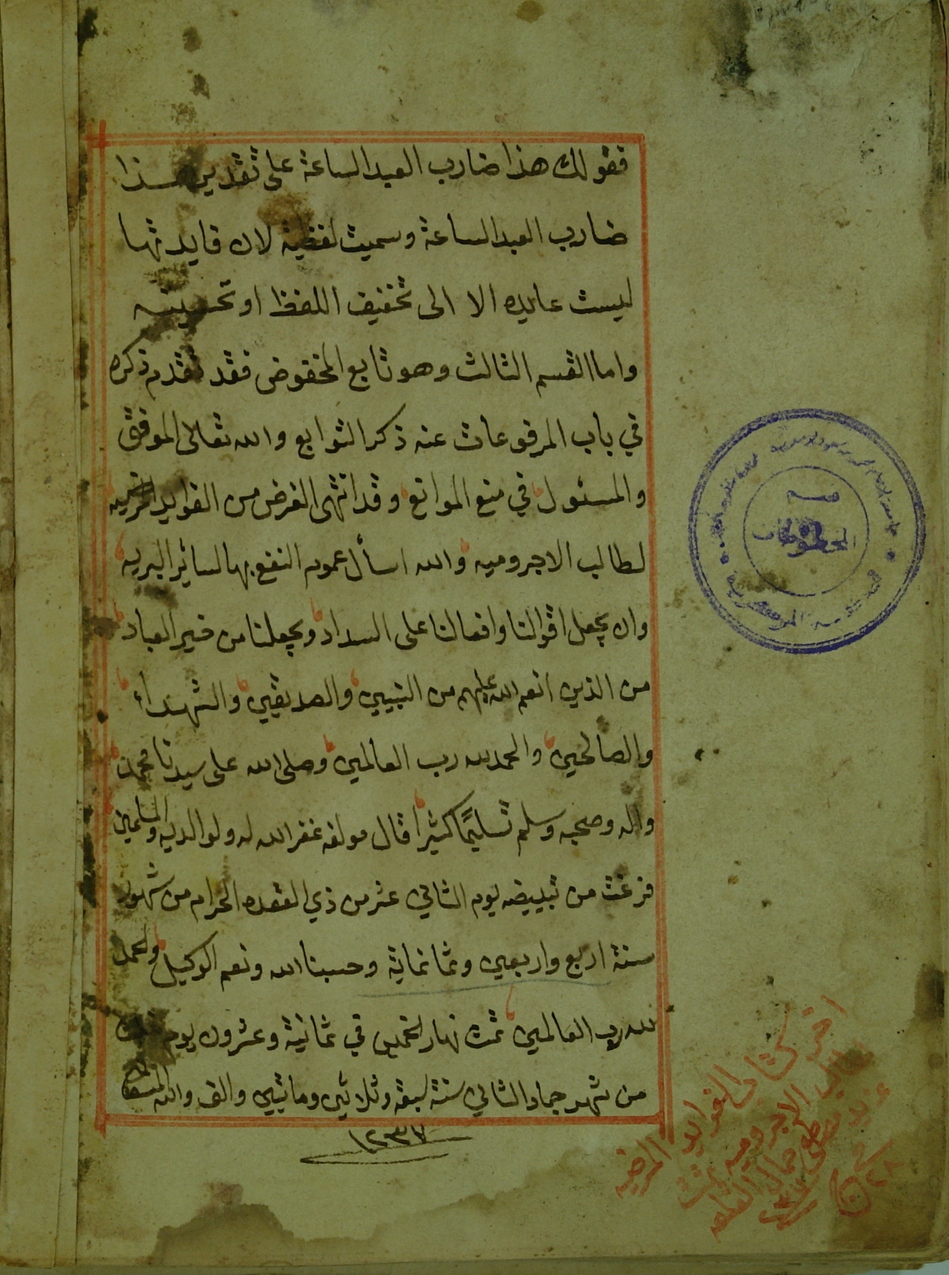 فقولك هذا ضارب العبد الساعة على تقدير هذا
ضارب العبد الساعة وسميت لفظية لان فايدتها
ليست عايده الا الى تخفيف اللفظ او تحسينه
واما القسم الثالث وهو تابع المخفوض فقد تقدم ذكره
في باب المرفوعات عند ذكر التوابع والله تعالى الموفق
والمسئول في منع الموانع وقد انتهى الغرض من الفوايد المرضيه
لطالب الاجروميه والله اسأل عموم النفع بها لسائر البريه
وان يجعل اقوالنا وافعالنا على السداد ويجعلنا من خير العباد
من الذين انعم الله عليهم من النبيين والصديقين والشهداء
والصالحين والحمد لله رب العالمين وصلى الله على سيدنا محمد
واله وصحبه وسلم تسليمًا كثيرا قال مولفه غفر الله له ولوالديه والمسلمين
فرغت من تبييضه يوم الثاني عشر من ذي القعده الحرام من شهور
سنة اربع واربعين وثمانماية وحسبنا الله ونعم الوكيل والحمد
لله رب العالمين تمت نهار الخميس في ثمانية وعشرون يوم
من شهر جماد الثاني سنة سبعة وثلاثين وماتيين والف والله
١٢٣٧
قسم
المخطوطات
اخر كتاب الفوايد المرضيه
الاجروميه